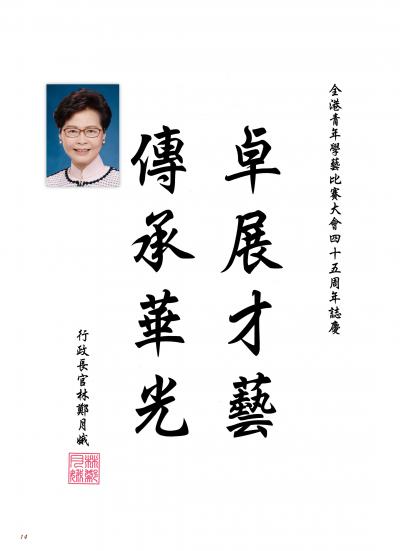 全港青年學藝比賽大會四十五周年誌慶
卓展才藝
傳承華光
行政長官林鄭月娥
林鄭月娥
14